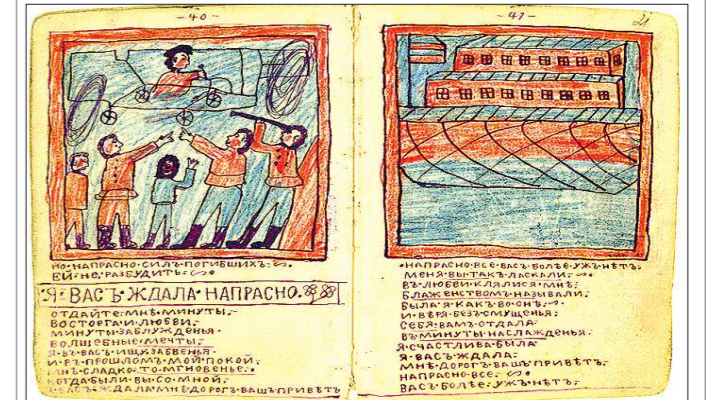 -40-
НО·НАПРАСНО·СИЛЪ·ПОГИБШИХЪ·
ЕЙ·НЕ·РАЗБУДИТЬ·
·Я·ВАСЪ·ЖДАЛА·НАПРАСНО·
ОТДАЙТЕ·МНѢ·МИНУТЫ·
ВОСТОРГА·И·ЛЮБВИ·
МИНУТЫ·ЗАБЛУЖДЕНЬЯ·
ВОЛШЕБНЫЕ·МЕЧТЫ·
Я·ВЪ·ВАСЪ·ИЩУ·ЗАБВЕНЬЯ·
И·ВЪ·ПРОШЛОМЪ·МОЙ·ПОКОЙ·
МНѢ·СЛАДКО·ТО·МГНОВЕНЬЕ·
КОГДА·БЫЛИ·ВЫ·СО·МНОЙ·
Я·ВАСЪ·ЖДАЛА·МНѢ·ДОРОГЪ·ВАШЪ·ПРИВѢТЪ
-41-
21
·НАПРАСНО·ВСЕ·ВАСЪ·БОЛѢЕ·УЖЪ·НѢТЪ·
МЕНЯ·ВЫ·ТАКЪ·ЛАСКАЛИ·
ВЪ·ЛЮБВИ·КЛЯЛИСЯ·МНѢ·
БЛАЖЕНСТВОМЪ·НАЗЫВАЛИ·
БЫЛА·Я·КАКЪ·ВО·СНѢ·
И·ВѢРЯ·БЕЗЪ·СМУЩЕНЬЯ·
СЕБЯ·ВАМЪ·ОТДАЛА·
ВЪ·МИНУТЫ·НАСЛАЖДЕНЬЯ·
Я·СЧАСТЛИВА·БЫЛА·
Я·ВАСЪ·ЖДАЛА·
МНѢ·ДОРОГЪ·ВАШЪ·ПРИВѢТЪ·
НАПРАСНО·ВСЕ·
ВАСЪ·БОЛѢЕ·УЖЪ·НѢТЪ·